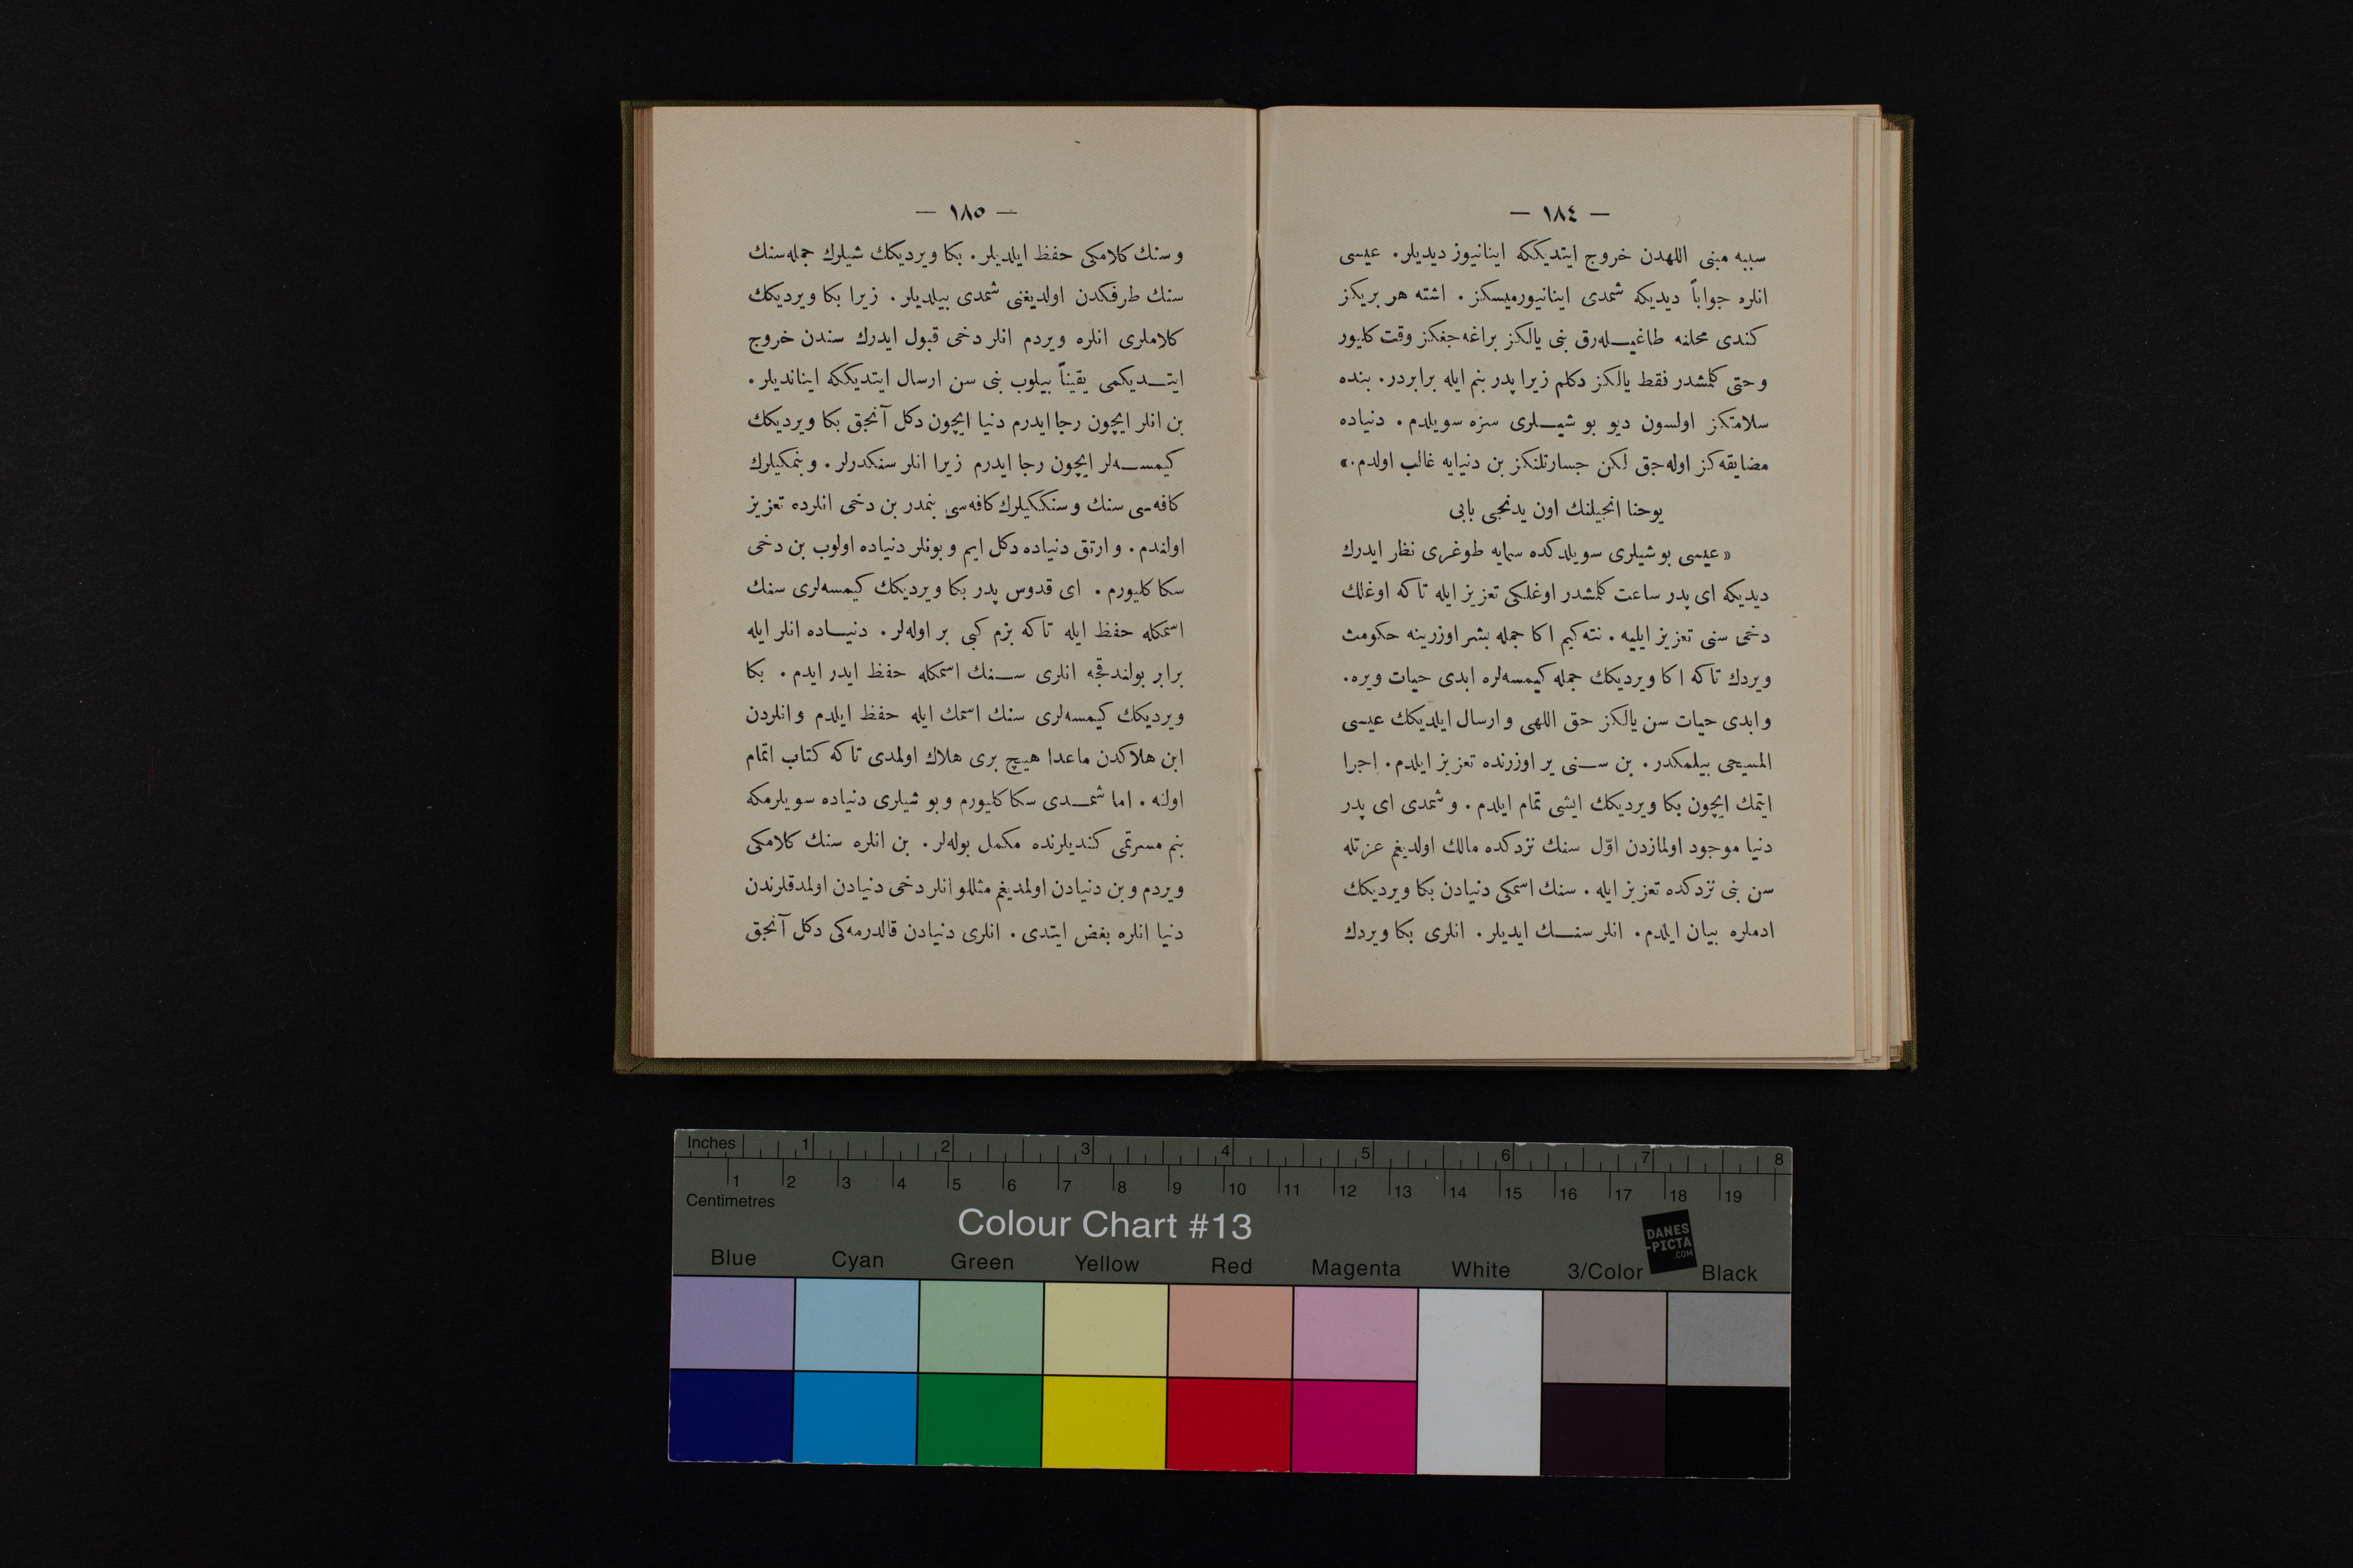 — ١٨٤ —
سببه مبنی اللهدن خروج ایتدیککه اینانیوز دیدیلر. عیسی
انلره جواباً دیدیکه شمدی اینانیورمیسکز. اشته هر بریکز
کندی محلنه طاغیـــله‌رق بنی یالکز براغه‌جغکز وقت کلیور
وحتی کلمشدر فقط یالکز دکلم زیرا پدر بنم ایله برابردر. بنده
سلامتکز اولسون دیو بو شیـــلری سزه سویلدم. دنیاده
مضایقه‌کز اوله‌جق لکن جسارتلنکز بن دنیایه غالب اولدم.»
یوحنا انجیلنك اون یدنجی بابی
«عیسی بو شیلری سویلدکده سمایه طوغری نظار ایدرك
دیدیکه ای پدر ساعت کلمشدر اوغلکی تعزیز ایله تا که اوغلك
دخی سنی تعزیز ایلیه. نته کیم اکا جمله بشر اوزرینه حکومت
ویردك تا که اکا ویردیکك جمله کیمسه‌لره ابدی حیات ویره.
وابدی حیات سن یالکز حق اللهی وارسال ایلدیکك عیسی
المسیحی بیلمکدر. بن ســـنی یر اوزرنده تعزیز ایلدم. اجرا
ایتمك ایچون بکا ویردیکك ایشی تمام ایلدم. و شمدی ای پدر
دنیا موجود اولمازدن اوّل سنك نزدکده مالك اولدیغم عزتله
سن بنی نزدکده تعزیز ایله. سنك اسمکی دنیادن بکا ویردیکك
ادملره بیان ایلدم. انلر سنـــك ایدیلر. انلری بکا ویردك
— ١٨٥ —
وسنك کلامکی حفظ ایلدیلر. بکا ویردیکك شیلرك جمله‌سنك
سنك طرفکدن اولدیغنی شمدی بیلدیلر. زیرا بکا ویردیکك
کلاملری انلره ویردم انلر دخی قبول ایدرك سندن خروج
ایتـــدیکمی یقیناً بیلوب بنی سن ارسال ایتدیککه ایناندیلر.
بن انلر ایچون رجا ایدرم دنیا ایچون دکل آنجق بکا ویردیکك
کیمســـه‌لر ایچون رجا ایدرم زیرا انلر سنکدرلر. و بنمکیلرك
کافه‌سی سنك وسنککیلرك کافه‌سی بنمدر بن دخی انلرده تعزیز
اولندم. وارتق دنیاده دکل ایم و بونلر دنیاده اولوب بن دخی
سکا کلیورم. ای قدوس پدر بکا ویردیکك کیمسه‌لری سنك
اسمکله حفظ ایله تا که بزم کبی بر اوله‌لر. دنیـــاده انلر ایله
برابر بولندقجه انلری ســـنك اسمکله حفظ ایدر ایدم. بکا
ویردیکك کیمسه‌لری سنك اسمك ایله حفظ ایلدم وانلردن
ابن هلاکدن ماعدا هیچ بری هلاك اولمدی تا که کتاب اتمام
اولنه. اما شمـــدی سکا کلیورم و بو شیلری دنیاده سویلرمکه
بنم مسرتمی کندیلرنده مکمل بوله‌لر. بن انلره سنك کلامکی
ویردم و بن دنیادن اولمدیغم مثللو انلر دخی دنیادن اولمدقلرندن
دنیا انلره بغض ایتدی. انلری دنیادن قالدرمه‌کی دکل آنجق
Inches 1 2 3 4 5 6 7 8
1 2 3 4 5 6 7 8 9 10 11 12 13 14 15 16 17 18 19
Centimetres
Colour Chart #13
DANES
-PICTA
.COM
Blue Cyan Green Yellow Red Magenta White 3/Color Black